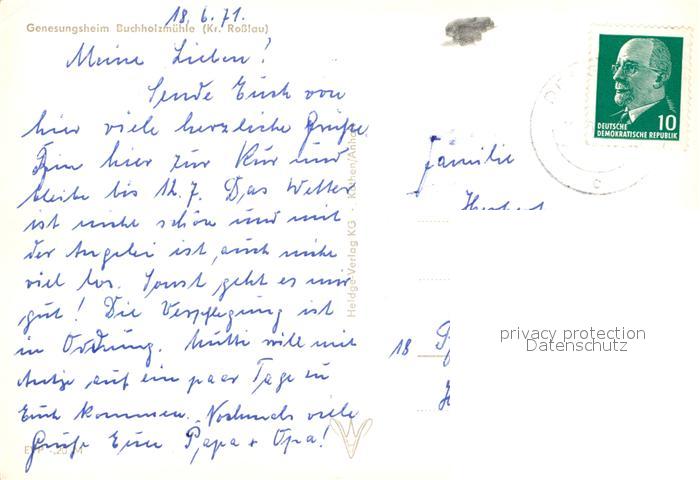 18.6.71.
Genesungsheim Buchholzmühle (Kr. Roßlau)
Meine Lieben!
Sende Euch von
hier viele herzliche Grüße
Bin hier zur Kur und
bleibe bis 12.7. Das Wetter
ist nicht schön und mit
der Angelei ist auch nicht
viel los. Sonst geht es mir
gut! Die Verpflegung ist
in Ordnung. Mutti will mit
auf ein paar Tage zu
Euch kommen. Nochmals viele
Grüße Euer Papa + Opa!
Heldge-Verlag KG
Familie
Herbert
18
DEUTSCHE
DEMOKRATISCHE REPUBLIK
10
privacy protection
Datenschutz